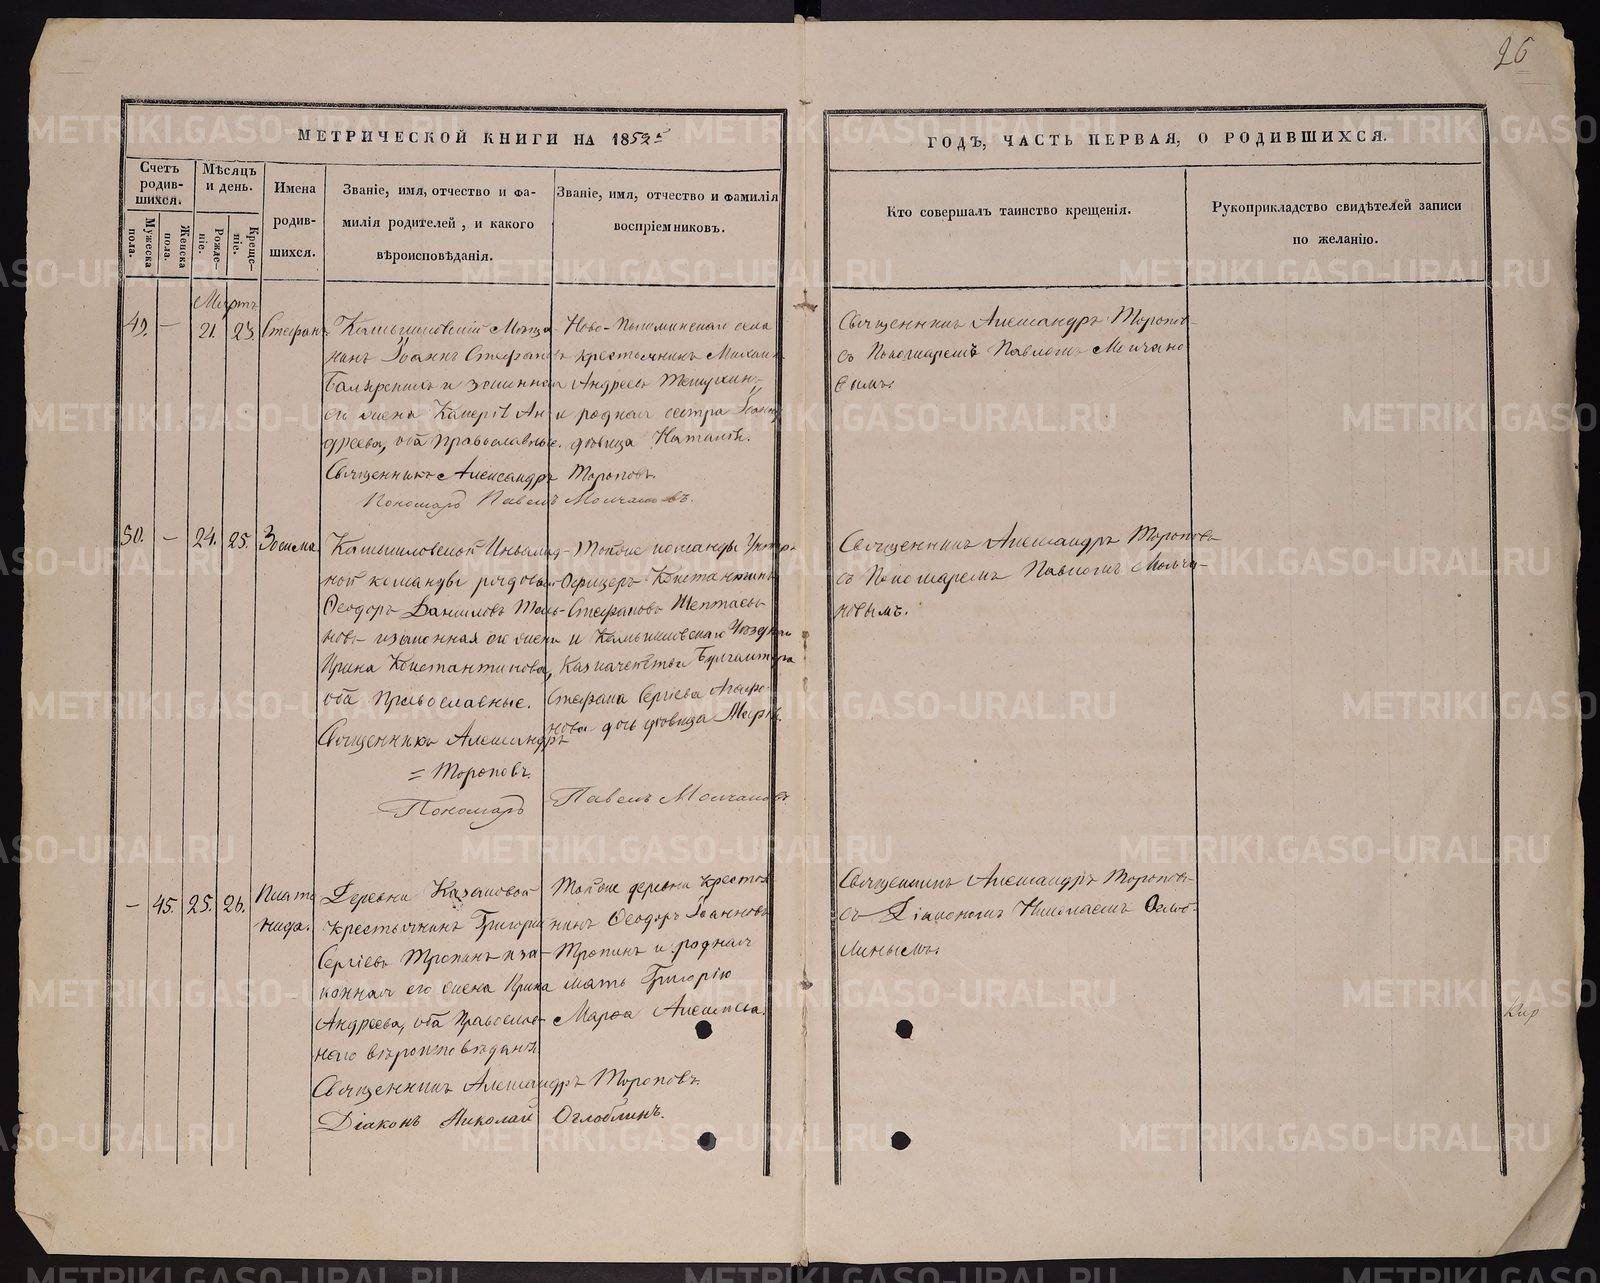 26
МЕТРИЧЕСКОЙ КНИГИ НА 1852й
ГОДЪ, ЧАСТЬ ПЕРВАЯ, О РОДИВШИХСЯ.
Счетъ родив-шихся.
Мужеска пола.
Женска пола.
Мѣсяцъ и день.
Рожде-ніе.
Креще-ніе.
Имена
родив-
шихся.
Званіе, имя, отчество и фа-
милія родителей, и какого
вѣроисповѣданія.
Званіе, имя, отчество и фамилія
воспріемниковъ.
Кто совершалъ таинство крещенія.
Рукоприкладство свидѣтелей записи
по желанію.
Мартъ
49. — 21. 23. Стефанъ
Камышловскій Мѣща-
нинъ Іоаннъ Стефановъ
и законная
его жена Ан-
дреева, оба православные.
Священникъ Александръ Тороповъ.
Пономарь Павелъ Молчановъ.
Ново-Пышминскаго села
крестьянинъ Михаилъ
Андреевъ
и родная сестра Іоанну
дѣвица Наталія.
Священникъ Александръ Тороповъ
съ Пономаремъ Павломъ Молчано
вымъ.
50. — 24. 25. Зосима.
Камышловской Инвалид-
ной команды рядовой
Ѳеодоръ Даниловъ
законная его жена
Ирина Константинова,
оба Православные.
Священникъ Александръ
= Тороповъ.
Пономарь Павелъ Молчановъ
Тойже команды Унтеръ
Офицеръ Константинъ
Стефановъ
и Камышловскаго Уѣзднаго
Казначейства Бухгалтера
Стефана Сергіева
дочь дѣвица
Священникъ Александръ Тороповъ
съ Пономаремъ Павломъ Молча-
новымъ.
— 45. 25. 26.
Деревни Казаковой
крестьянинъ Григорій
Сергіевъ Тропинъ и за-
конная его жена Ирина
Андреева, оба Православ-
наго вѣроисповѣданія.
Священникъ Александръ Тороповъ.
Діаконъ Николай Оглоблинъ.
Тойже деревни крестья
нинъ Ѳеодоръ Іоанновъ
Тропинъ и родная
мать Григорію
Марѳа Алексѣева.
Священникъ Александръ Тороповъ
съ Діакономъ Николаемъ Оглоб-
линымъ.
METRIKI.GASO-URAL.RU